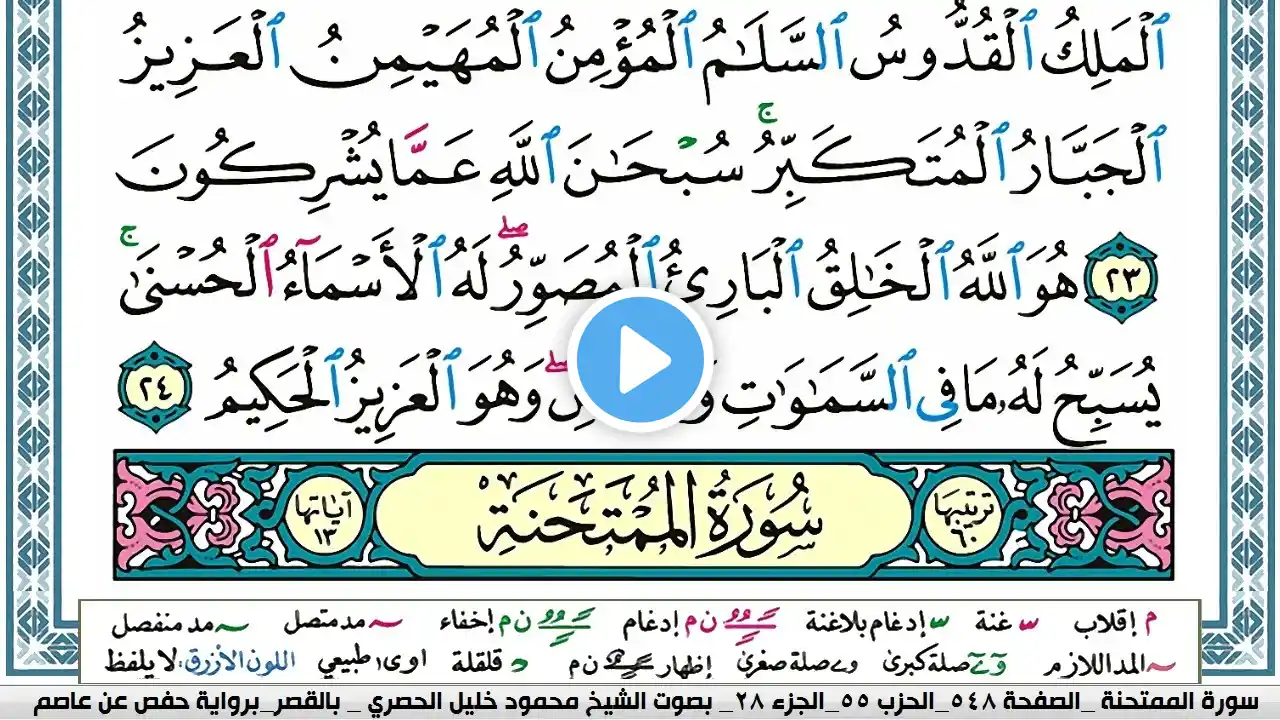 ٱلْمَلِكُ ٱلْقُدُّوسُ ٱلسَّلَٰمُ ٱلْمُؤْمِنُ ٱلْمُهَيْمِنُ ٱلْعَزِيزُ
ٱلْجَبَّارُ ٱلْمُتَكَبِّرُ ۚ سُبْحَٰنَ ٱللَّهِ عَمَّا يُشْرِكُونَ
٢٣ هُوَ ٱللَّهُ ٱلْخَٰلِقُ ٱلْبَارِئُ ٱلْمُصَوِّرُ ۖ لَهُ ٱلْأَسْمَآءُ ٱلْحُسْنَىٰ ۚ
يُسَبِّحُ لَهُۥ مَا فِى ٱلسَّمَٰوَٰتِ ۖ وَهُوَ ٱلْعَزِيزُ ٱلْحَكِيمُ ٢٤
ترتيبها ٦٠ سُورَةُ المُمْتَحنَة آياتها ١٣
م إقلاب غنة إدغام بلاغنة ن م إدغام ن م إخفاء مد متصل مد منفصل
المد اللازم صلة كبرى صلة صغرى إظهار ن م قلقلة اوى طبيعي اللون الأزرق: لا يلفظ
سورة الممتحنة _الصفحة ٥٤٨_الحزب ٥٥_الجزء ٢٨_ بصوت الشيخ محمود خليل الحصري _ بالقصر_برواية حفص عن عاصم